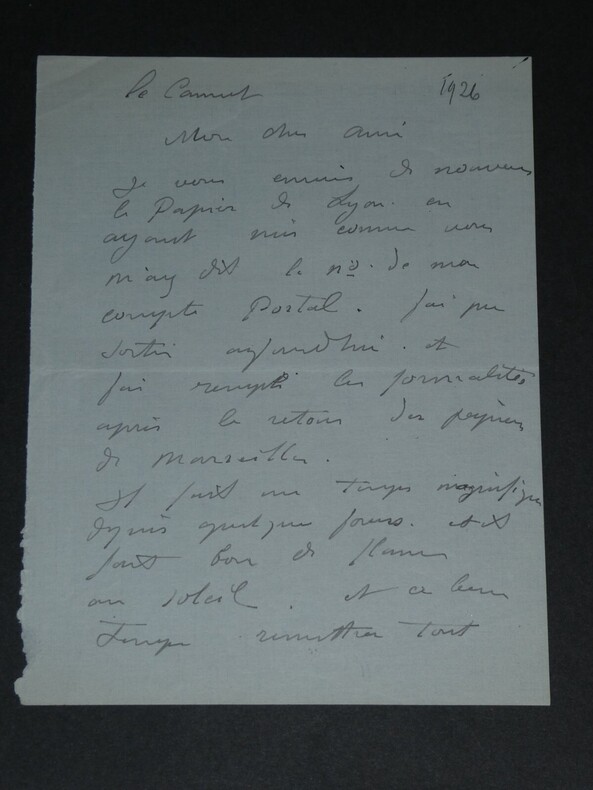 le Cannet 1926
Mon cher ami
Je vous envoie de nouveau
le Papier de Lyon. en
ayant mis comme vous
m'ay dit le no. de mon
compte Postal. j'ai pu
sortir aujourd'hui. et
j'ai rempli les formalités
après le retour des papiers
de Marseille.
Il fait un temps magnifique
depuis quelques jours. et il
fait bon de flaner
au soleil. et ce beau
Temps remettra Tout